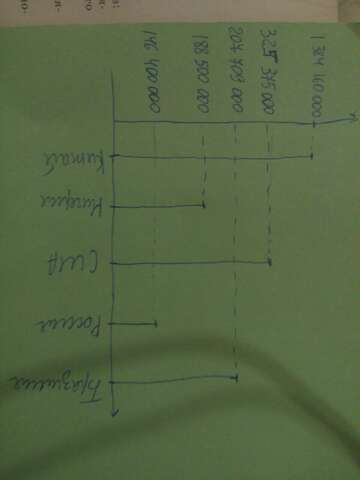 1 384 160 000
325 345 000
204 709 000
188 500 000
146 400 000
Китай Нигерия США Россия Бразилия